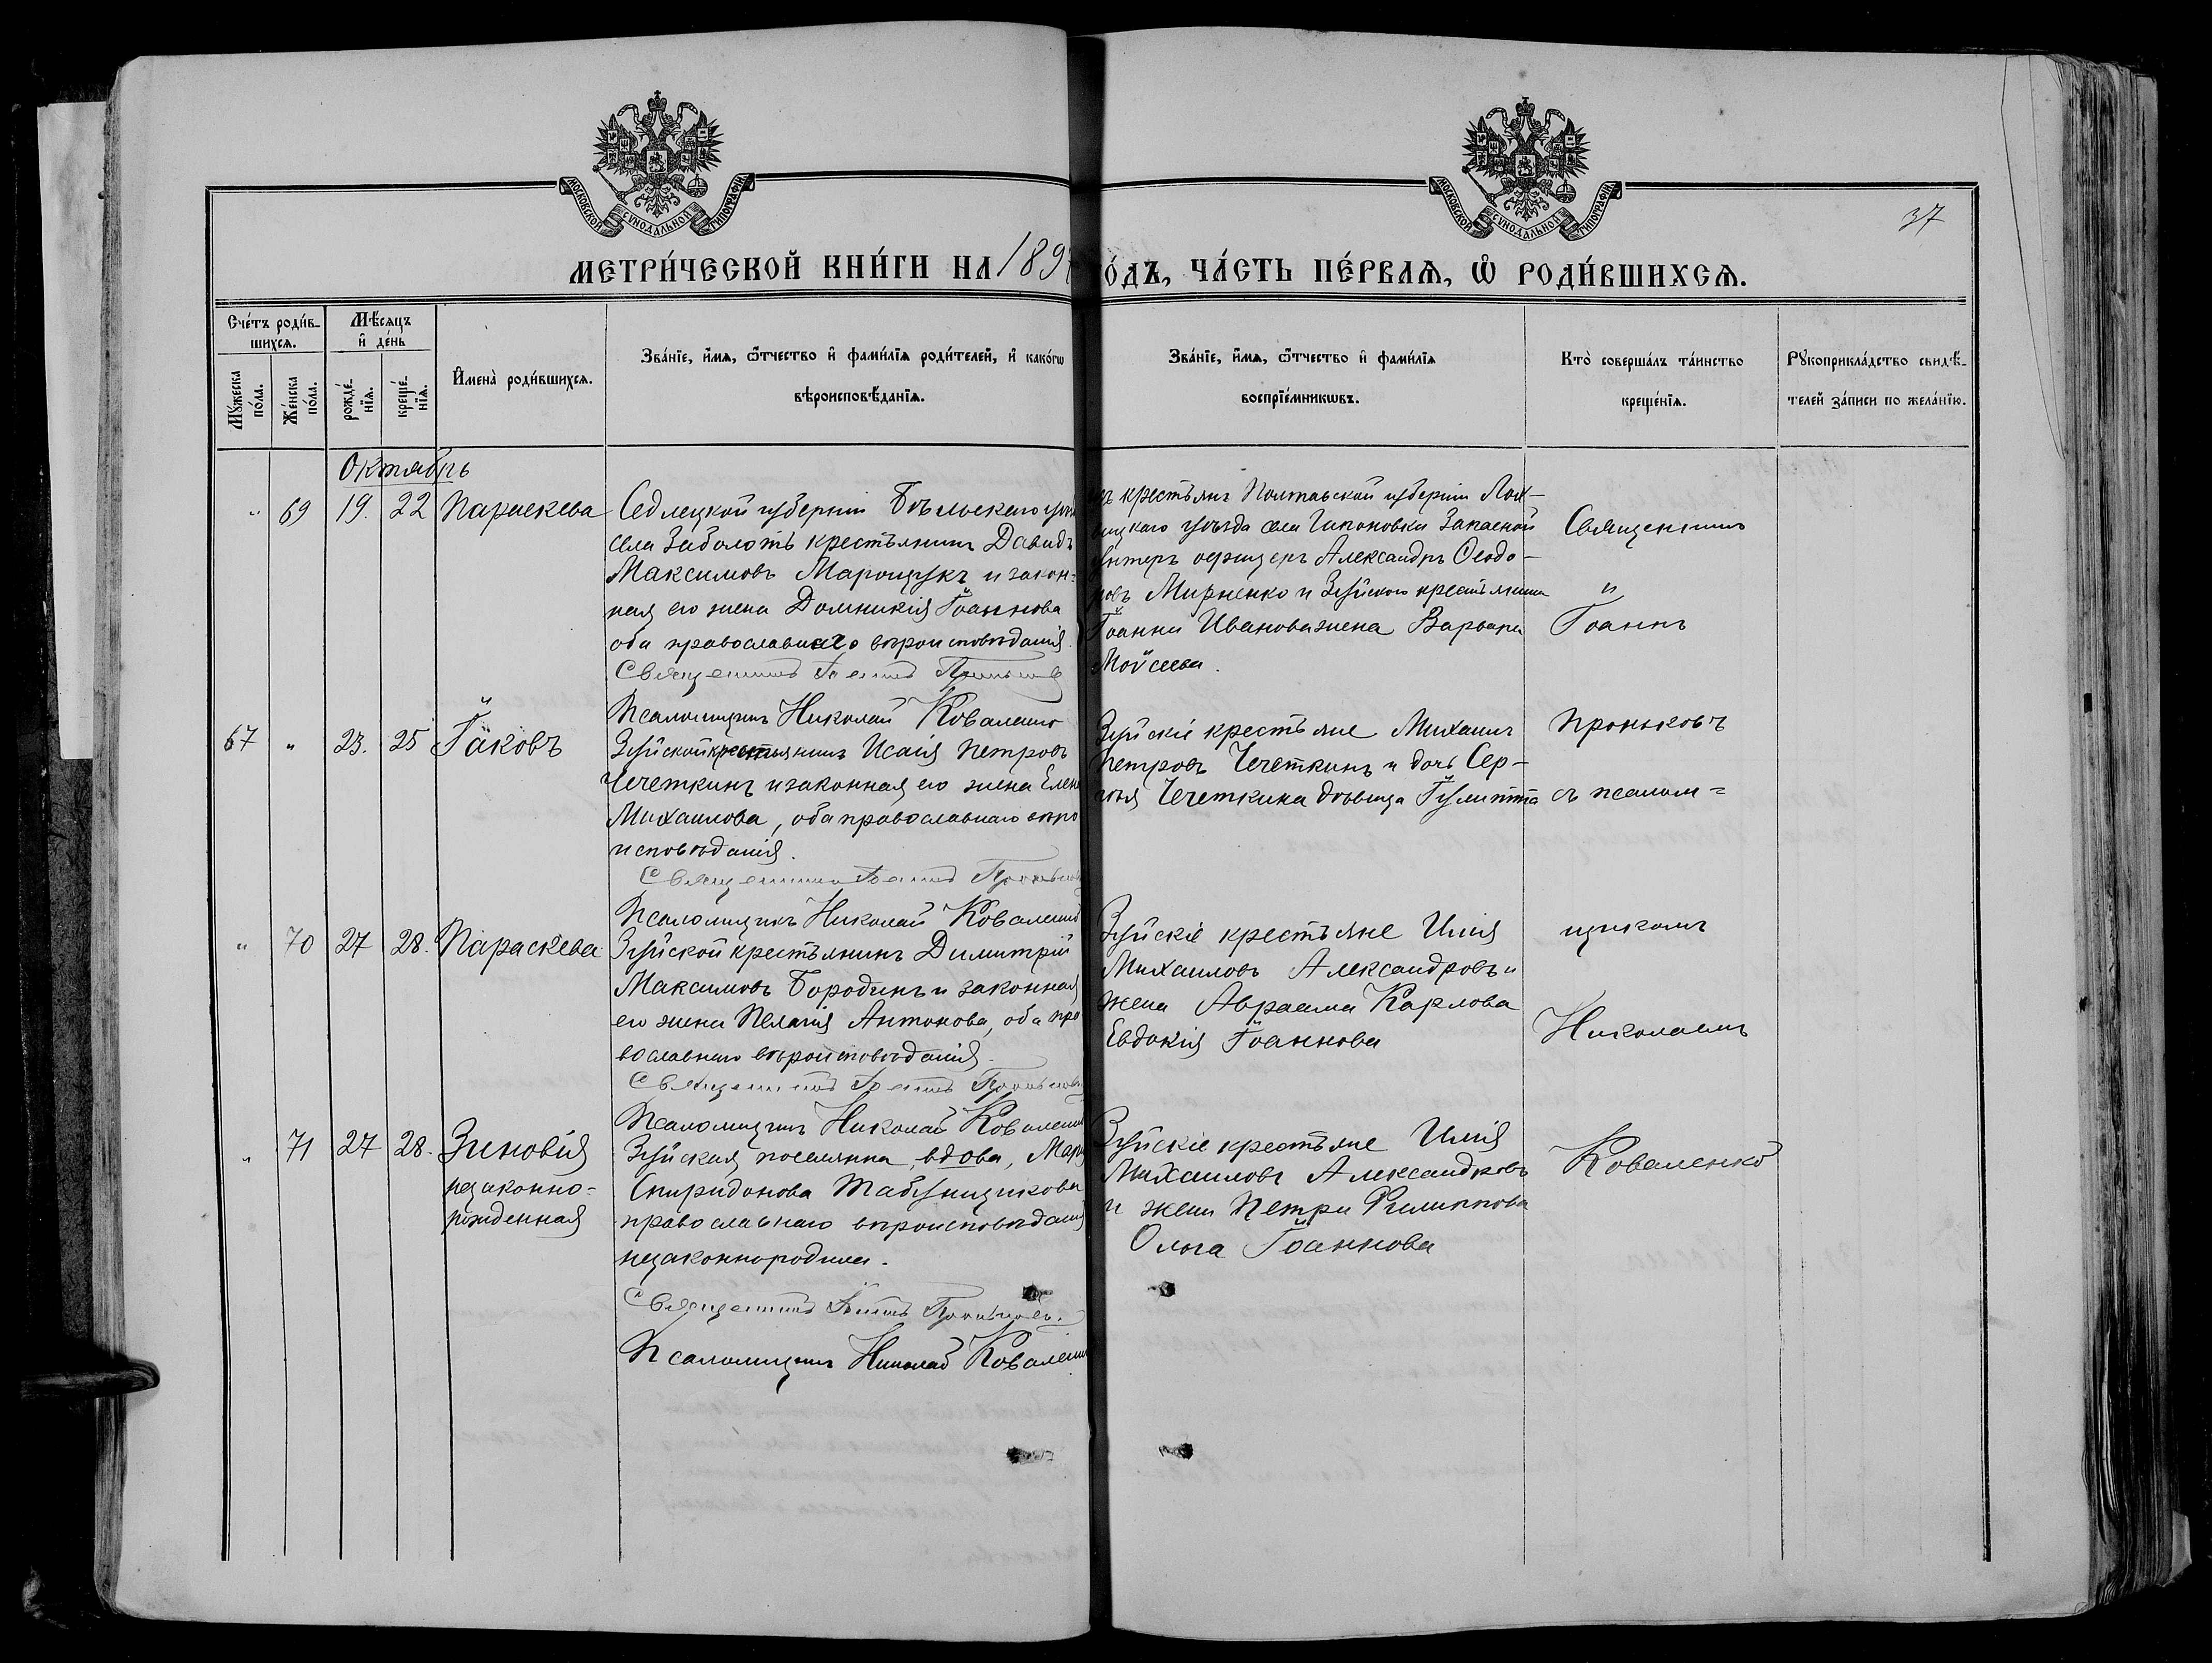 МОСКОВСКОЙ СѴНОДАЛЬНОЙ ТИПОГРАФІИ
МОСКОВСКОЙ СѴНОДАЛЬНОЙ ТИПОГРАФІИ
37
МЕТРИ́ЧЕСКОЙ КНИ́ГИ НА 189
О́ДЪ, ЧА́СТЬ ПЕ́РВАѦ, Ѽ РОДИ́ВШИХСѦ.
Сче́тъ роди́в-
шихсѧ.
Мѣ́сѧцъ
и҆ де́нь
Мꙋ́жеска
по́ла.
Же́нска
по́ла.
рожде́-
нїѧ.
креще́-
нїѧ.
И҆мена̀ роди́вшихсѧ.
Зва́нїе, и҆́мѧ, ѻ҆́тчество и҆ фами́лїѧ роди́телей, и҆ како́гѡ
вѣроисповѣ́данїѧ.
Зва́нїе, и҆́мѧ, ѻ҆́тчество и҆ фами́лїѧ
воспрїе́мникѡвъ.
Кто̀ соверша́лъ та́инство
креще́нїѧ.
Рꙋкоприкла́дство свидѣ́-
телей за́писи по жела́нїю.
Октябрь
" 69 19. 22 Параскева
Седлецкой губерніи Бѣльскаго
села Заболоть крестьянинъ Давидъ
Максимовъ Марощукъ и закон=
ная его жена Домникія Іоаннова
оба православнаго вѣроисповѣданія.
Священникъ Іоаннъ Проньковъ
Псаломщикъ Николай Коваленко
изъ крестьянъ Полтавской губерніи Лох-
вицкаго уѣзда села Запасной
унтеръ офицеръ Александръ Ѳеодо-
ровъ Мирненко и Зуйскаго крестьянина
Іоанна Иванова жена Варвара
Моисеева.
Священникъ
"
Іоаннъ
67 " 23. 25 Іаковъ
Зуйской крестьянинъ Исаія Петровъ
Чечеткинъ и законная его жена Елена
Михаилова, оба православнаго вѣро
исповѣданія.
Священникъ Іоаннъ Проньковъ
Псаломщикъ Николай Коваленко
Зуйскіе крестьяне Михаилъ
Петровъ Чечеткинъ и дочь Сер-
гѣя Чечеткина дѣвица Іулитта
Проньковъ
съ псалом=
" 70 27 28. Параскева
Зуйской крестьянинъ Димитрій
Максимовъ Бородинъ и законная
его жена Пелагія Антонова, оба пра
вославнаго вѣроисповѣданія.
Священникъ Іоаннъ Проньковъ
Псаломщикъ Николай Коваленко
Зуйскіе крестьяне Илія
Михаиловъ Александровъ и
жена Авраама Карлова
Евдокія Іоаннова
щикомъ
Николаемъ
" 71 27 28. Зиновія
незаконно=
рожденная
Зуйская поселянка, вдова, Марія
Спиридонова Табунщикова
православнаго вѣроисповѣданія
незаконнородила.
Священникъ Іоаннъ Проньковъ.
Псаломщикъ Николай Коваленко
Зуйскіе крестьяне Илія
Михаиловъ Александровъ
и жена Петра Филиппова
Ольга Іоаннова
Коваленко